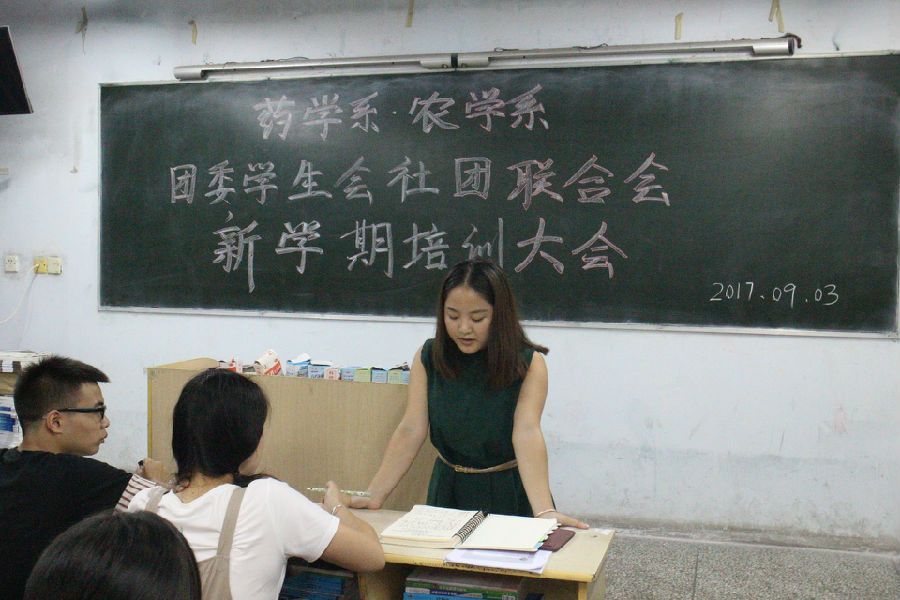 药学系·农学系
团委学生会社团联合会
新学期培训大会
2017.09.03